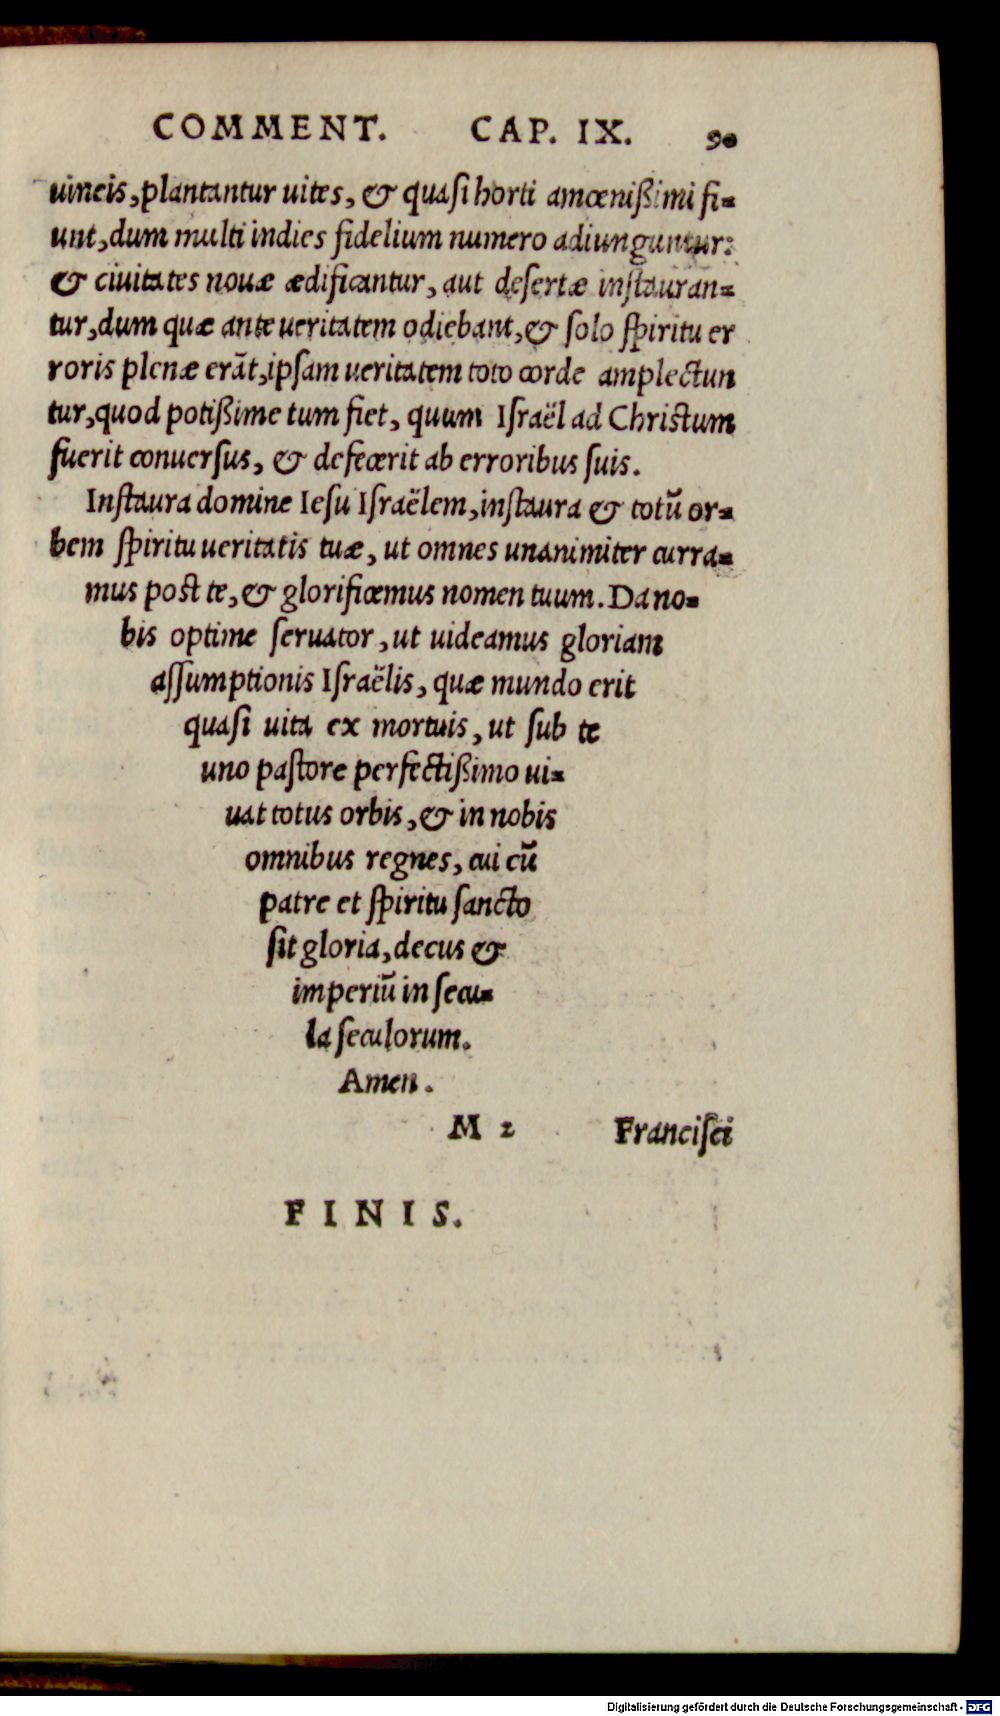 COMMENT. CAP. IX. 90
uineis, plantantur uites, & quasi horti amœnißimi fi-
unt, dum multi indies fidelium numero adiunguntur:
& ciuitates nouæ ædificantur, aut desertæ instauran-
tur, dum quæ ante ueritatem odiebant, & solo spiritu er
roris plenæ erãt, ipsam ueritatem toto corde amplectun
tur, quod potißime tum fiet, quum Israël ad Christum
fuerit conuersus, & defecerit ab erroribus suis.
Instaura domine Iesu Israëlem, instaura & totũ or-
bem spiritu ueritatis tuæ, ut omnes unanimiter curra-
mus post te, & glorificemus nomen tuum. Da no-
bis optime seruator, ut uideamus gloriam
assumptionis Israëlis, quæ mundo erit
quasi uita ex mortuis, ut sub te
uno pastore perfectißimo ui-
uat totus orbis, & in nobis
omnibus regnes, cui cũ
patre et spiritu sancto
sit gloria, decus &
imperiũ in secu-
la seculorum.
Amen.
M 2 Francisci
FINIS.
Digitalisierung gefördert durch die Deutsche Forschungsgemeinschaft - DFG